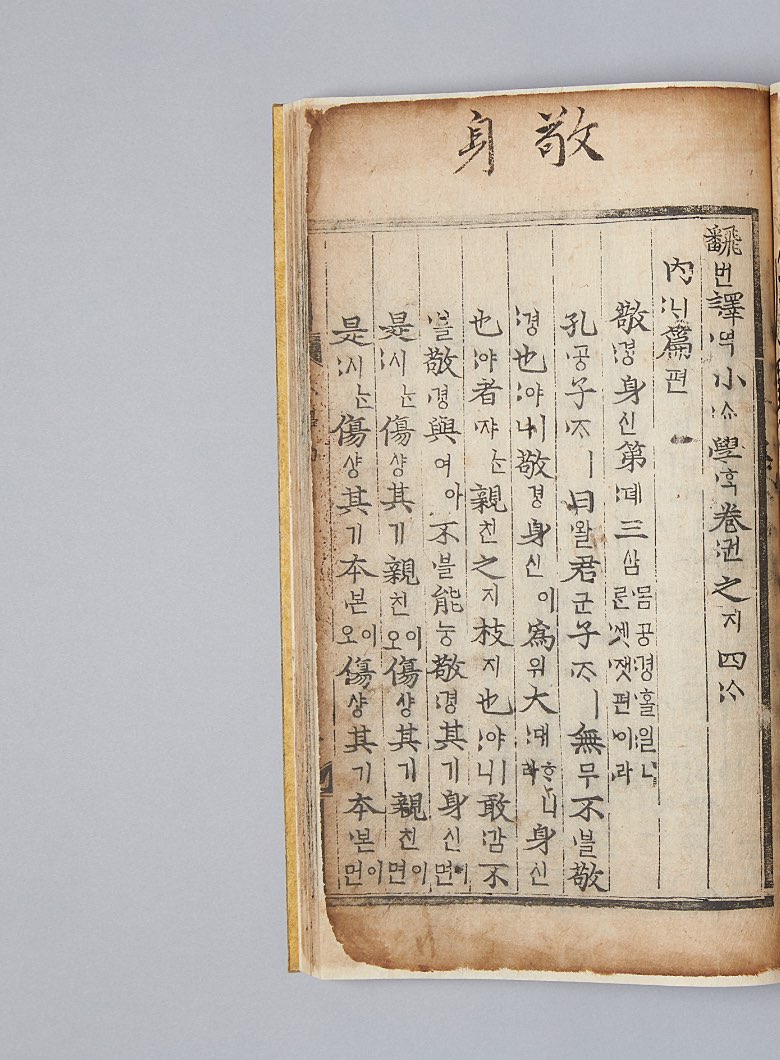 敬身
飜번譯역小쇼學ᄒᆞᆨ卷권之지四ᄉᆞ
內ᄂᆡ篇편
敬경身신第뎨三삼 몸공경홀일니론셋잿편이라
孔공子ᄌᆞㅣ曰왈君군子ᄌᆞㅣ無무不블敬
경也야ㅣ나敬경身신이爲위大대ᄒᆞ니라身신
也야者쟈ᄂᆞᆫ親친之지枝지也야ㅣ니敢감不
블敬경與여아不블能능敬경其기身신이면
是시ᄂᆞᆫ傷샹其기親친이오傷샹其기親친이면
是시ᄂᆞᆫ傷샹其기本본이오傷샹其기本본이먼